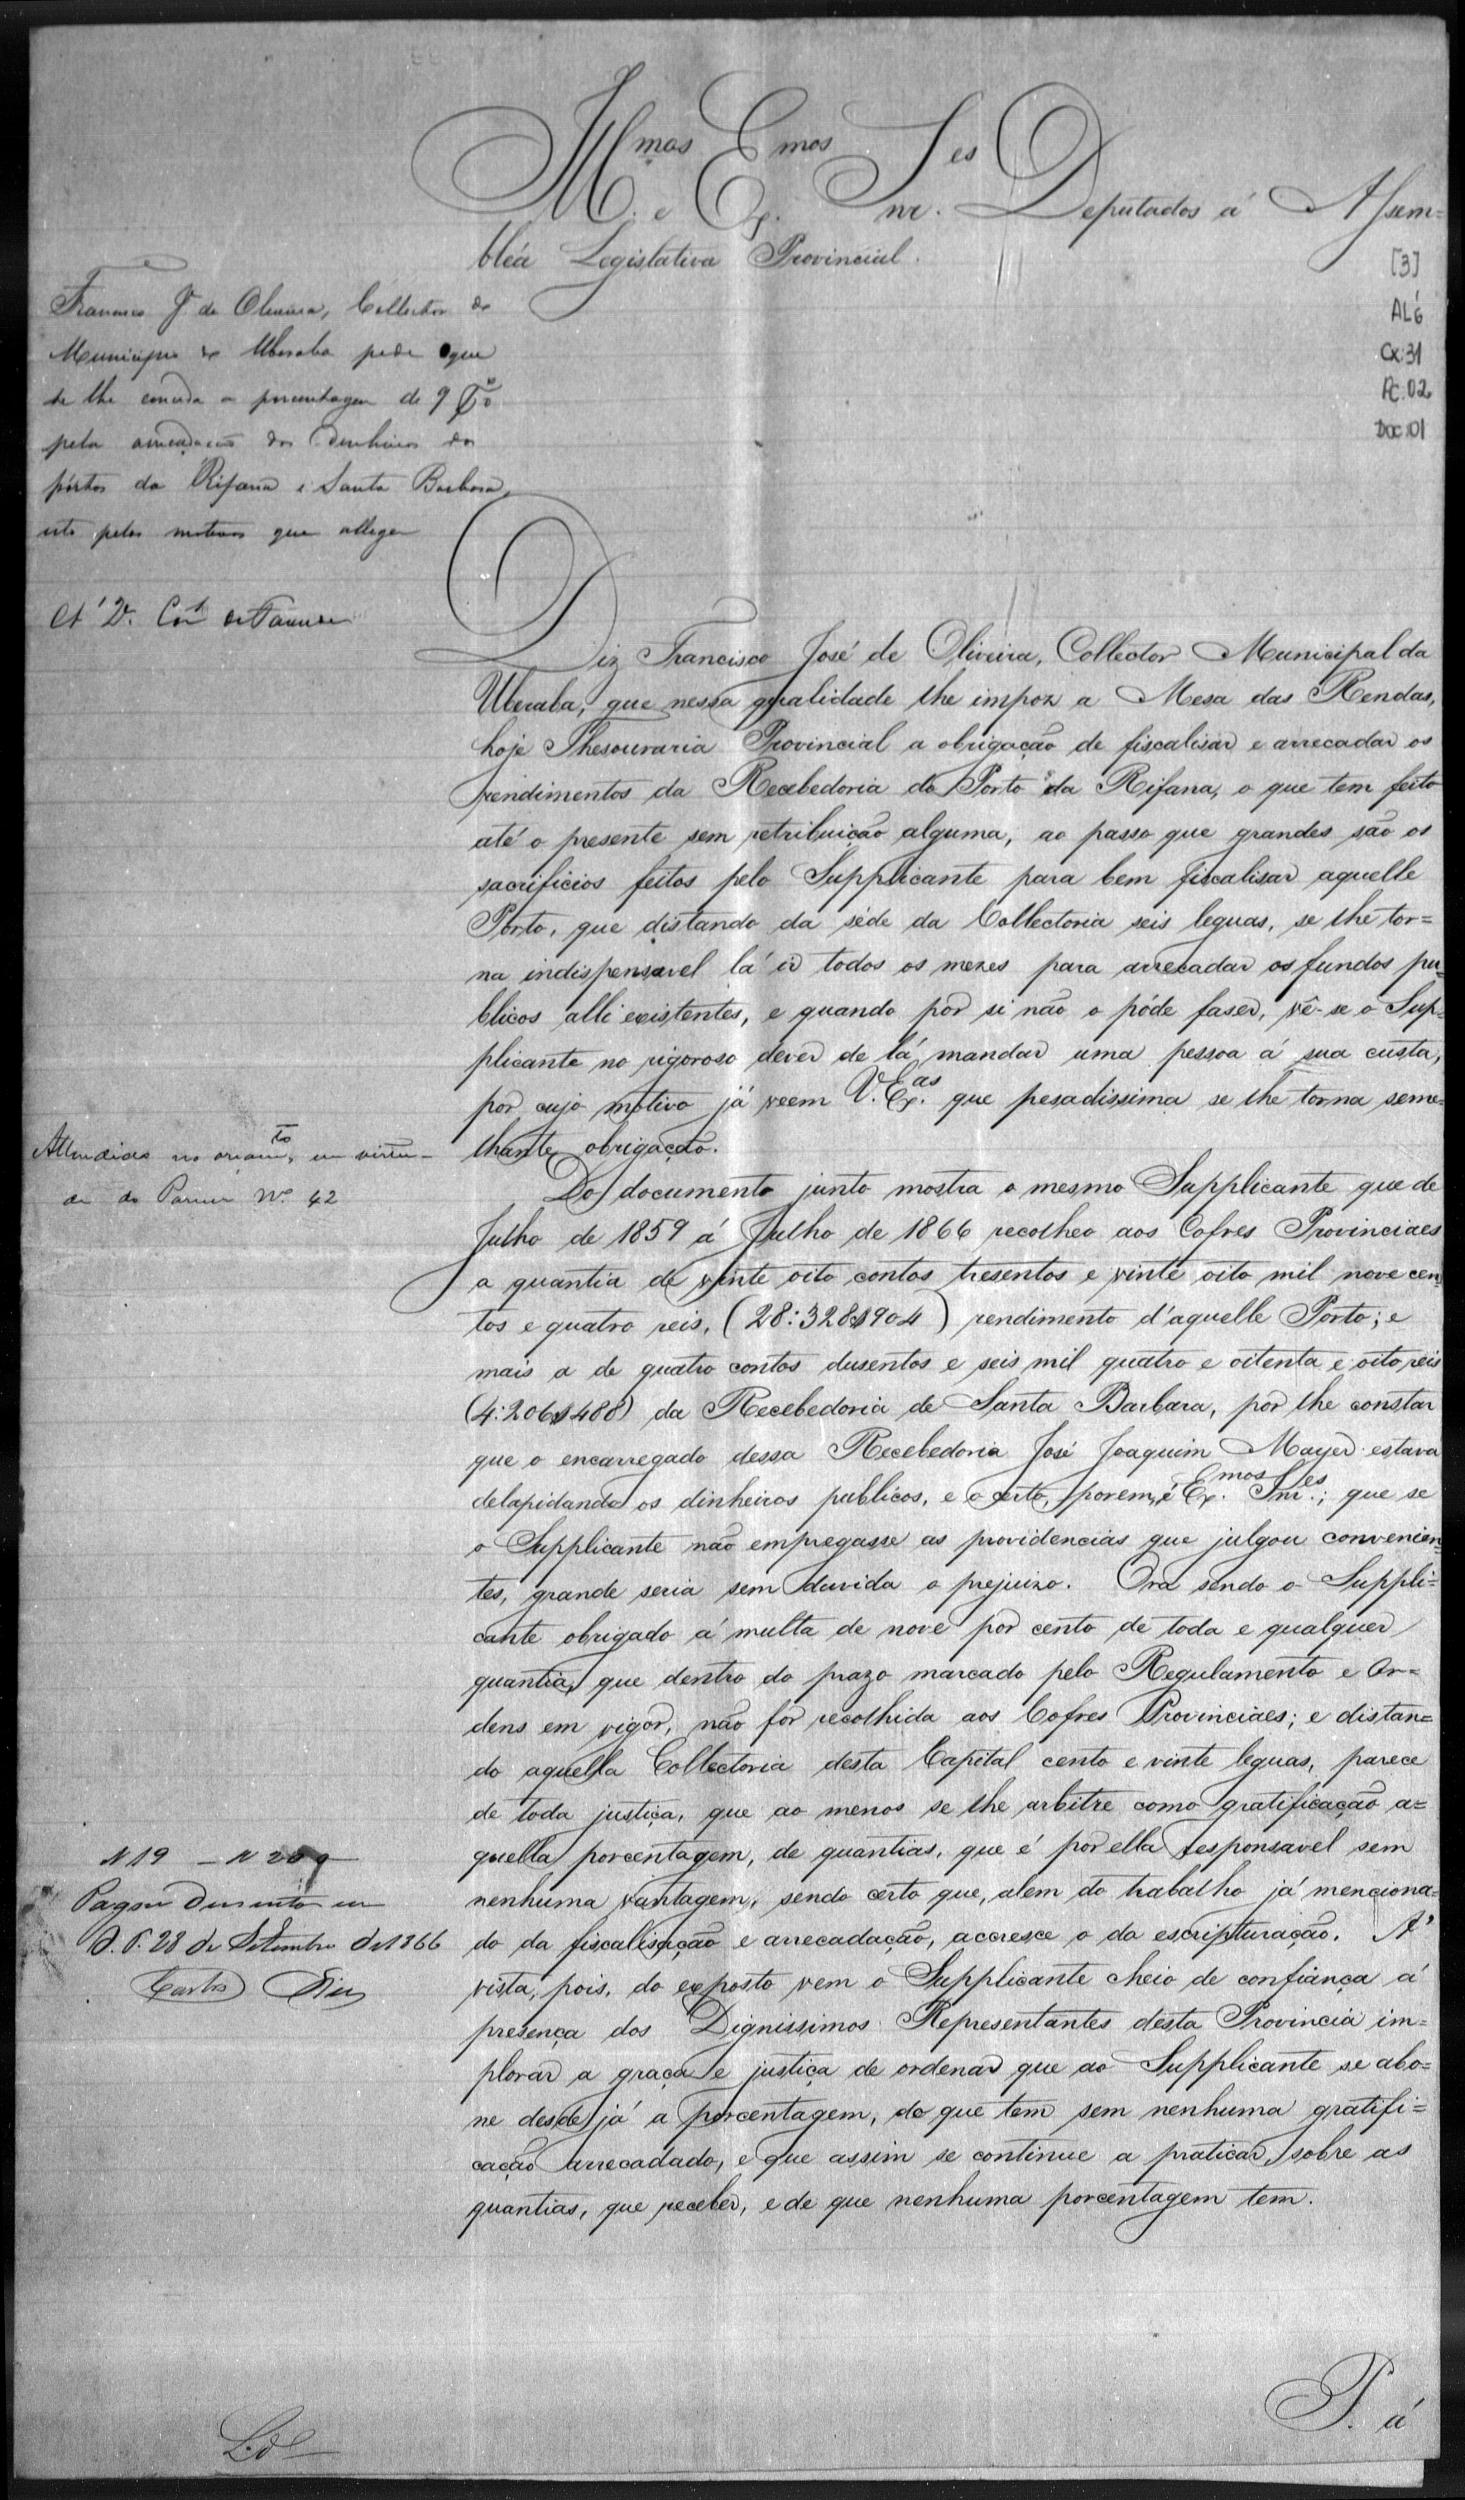 Illmos e Exmos Snres Deputados á Assem=
bléa Legislativa Provincial.
[3]
AL6
Cx:31
Pc:02
Doc:01
Francisco Jé de Oliveira, Collector do
Municipio de Uberaba pede que
se lhe conceda a porcentagem de 9 %
pela arrecadação dos dinheiros dos
pórtos da Rifana e Santa Barbara,
isto pelos motivos que allega
Á 2ª Com de Fazenda
Diz Francisco José de Oliveira, Collector Municipal da
Uberaba, que nessa qualidade lhe impoz a Mesa das Rendas,
hoje Thesouraria Provincial a obrigação de fiscalisar e arrecadar os
rendimentos da Recebedoria do Porto da Rifana, o que tem feito
até o presente sem retribuição alguma, ao passo que grandes são os
sacrificios feitos pelo Supplicante para bem fiscalisar aquelle
Porto, que distando da séde da Collectoria seis leguas, se lhe tor=
na indispensavel lá ir todos os mezes para arrecadar os fundos pu=
blicos alli existentes, e quando por si não o póde faser, vê-se o Sup=
plicante no rigoroso dever de lá mandar uma pessoa á sua custa,
por cujo motivo já veem V. Exas. que pesadissima se lhe torna seme=
lhante obrigação.
Attendido no orçamto, em virtu-
de do Parecer Nº 42
Do documento junto mostra o mesmo Supplicante que de
Julho de 1859 á Julho de 1866 recolheo aos Cofres Provinciaes
a quantia de vinte oito contos tresentos e vinte oito mil nove cen=
tos e quatro reis, (28:328$904) rendimento d'aquelle Porto; e
mais a de quatro contos dusentos e seis mil quatro e oitenta e oito reis
(4:206$488) da Recebedoria de Santa Barbara, por lhe constar
que o encarregado dessa Recebedoria José Joaquim Mayer estava
delapidando os dinheiros publicos, e o certo, porem, é Exmos. Snres.; que se
o Supplicante não empregasse as providencias que julgou convenien=
tes, grande seria sem duvida o prejuizo. Ora sendo o Suppli=
cante obrigado á multa de nove por cento de toda e qualquer
quantia, que dentro do prazo marcado pelo Regulamento e Or=
dens em vigor, não for recolhida aos Cofres Provinciaes; e distan=
do aquella Collectoria desta Capital cento e vinte leguas, parece
de toda justiça, que ao menos se lhe arbitre como gratificação a=
quella porcentagem, de quantias, que é por ella responsavel sem
nenhuma vantagem, sendo certo que, alem do trabalho já menciona=
do da fiscalisação e arrecadação, accresce o da escripturação. Á
vista, pois, do exposto vem o Supplicante cheio de confiança á
presença dos Dignissimos Representantes desta Provincia im=
plorar a graça e justiça de ordenar que ao Supplicante se abo=
ne desde já a porcentagem, do que tem sem nenhuma gratifi=
cação arrecadado, e que assim se continue a praticar, sobre as
quantias, que receber, e de que nenhuma porcentagem tem.
N 19 - N 209
Pagou dusentos em
O. P. 28 de Setembro de 1866
P. á